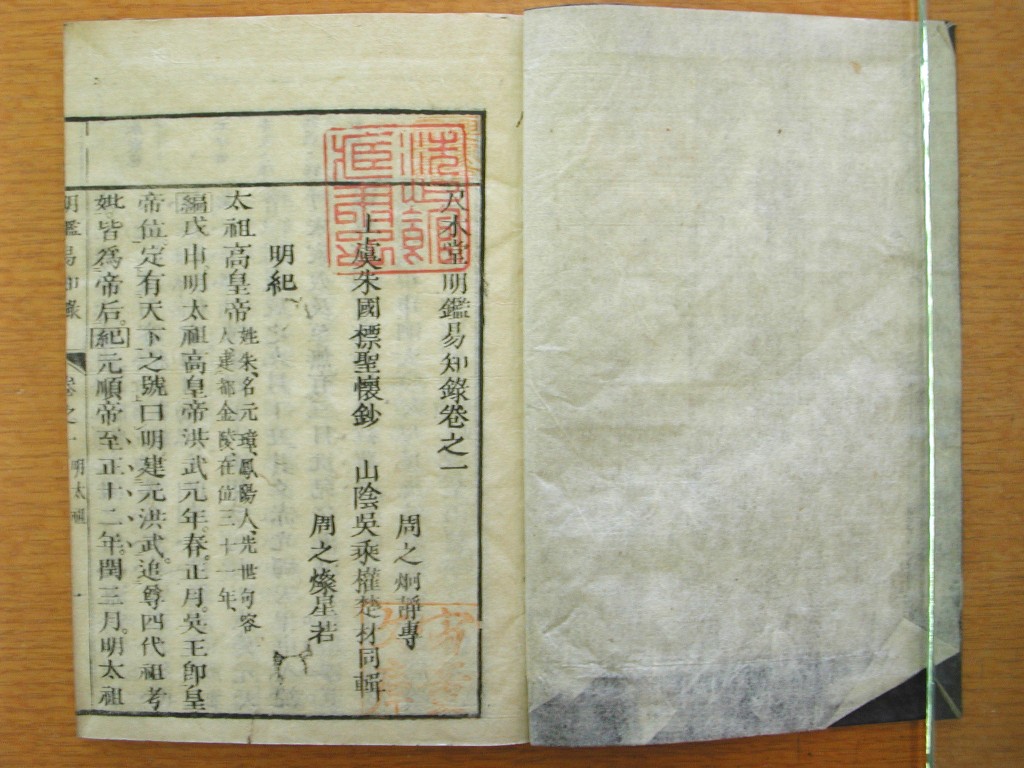 尺木堂明鑑易知錄卷之一
周之炯靜專
上虞朱國標聖懷鈔 山陰吳乘權楚材同輯
周之燦星若
明紀
太祖高皇帝姓朱、名元璋、鳳陽人、先世句容人、建都金陵、在位三十一年、
編戊申明太祖高皇帝洪武元年。春。正月。吳王即皇
帝位定有天下之號曰明建元洪武。追尊四代祖考
妣皆為帝后。紀元順帝至正十二年。閏三月。明太祖
明鑑易知錄 卷之一 明太祖 一